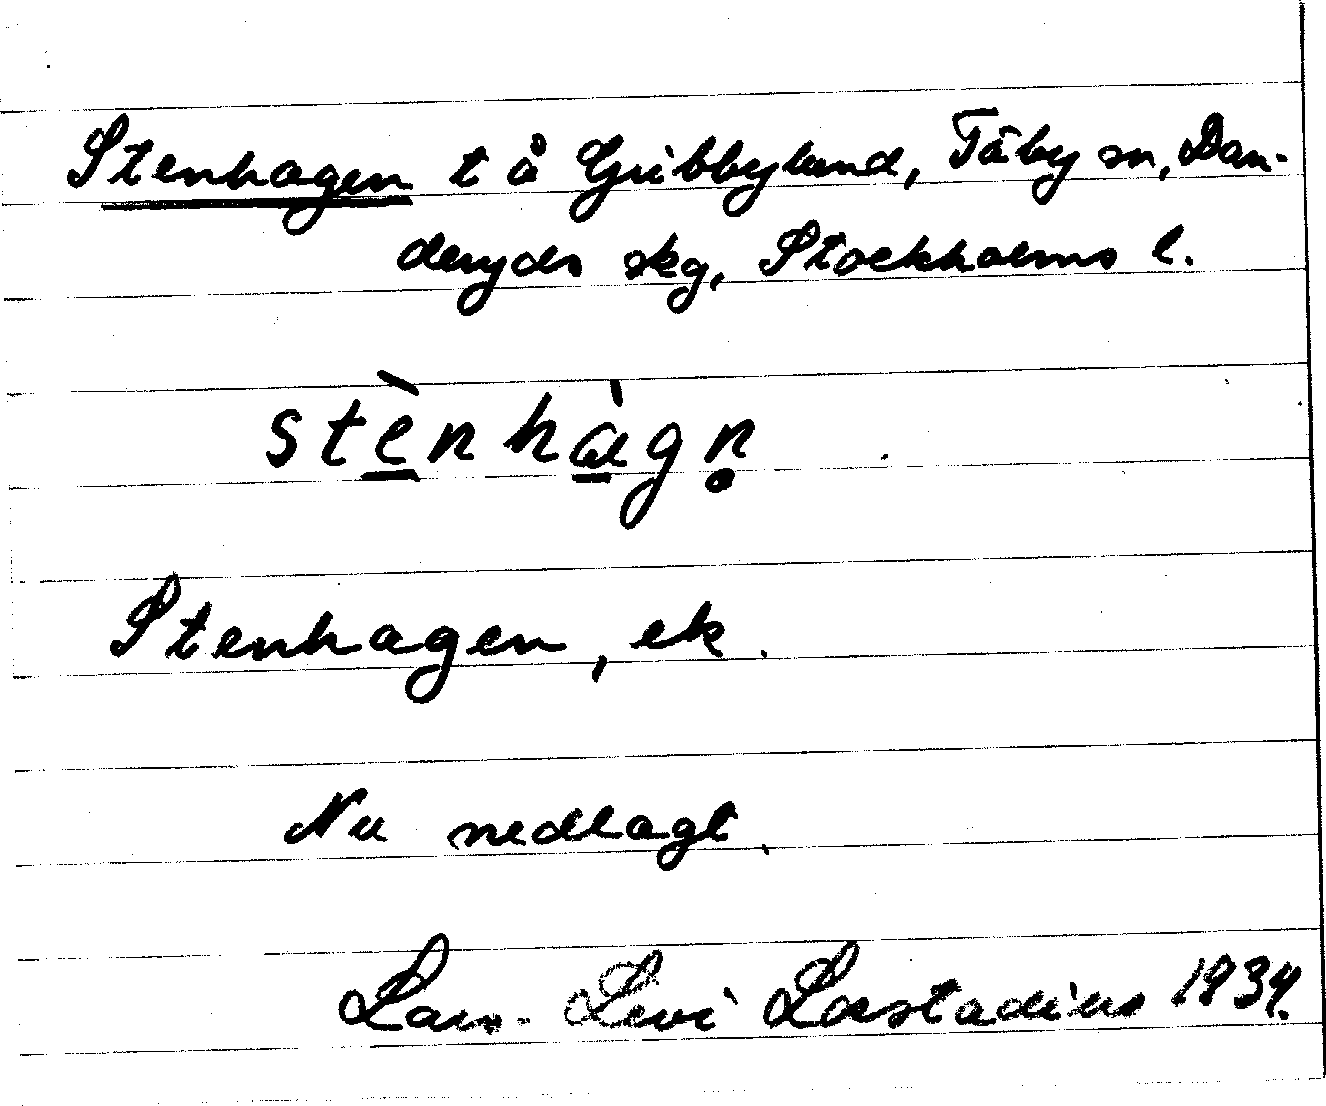 Stenhagen t å Gribbylund, Täby sn, Dan-
deryds skg, Stockholms l.
stè̲nhà̲gn̥
Stenhagen, ek.
Nu nedlagt.
Lars-Levi Læstadius 1934.